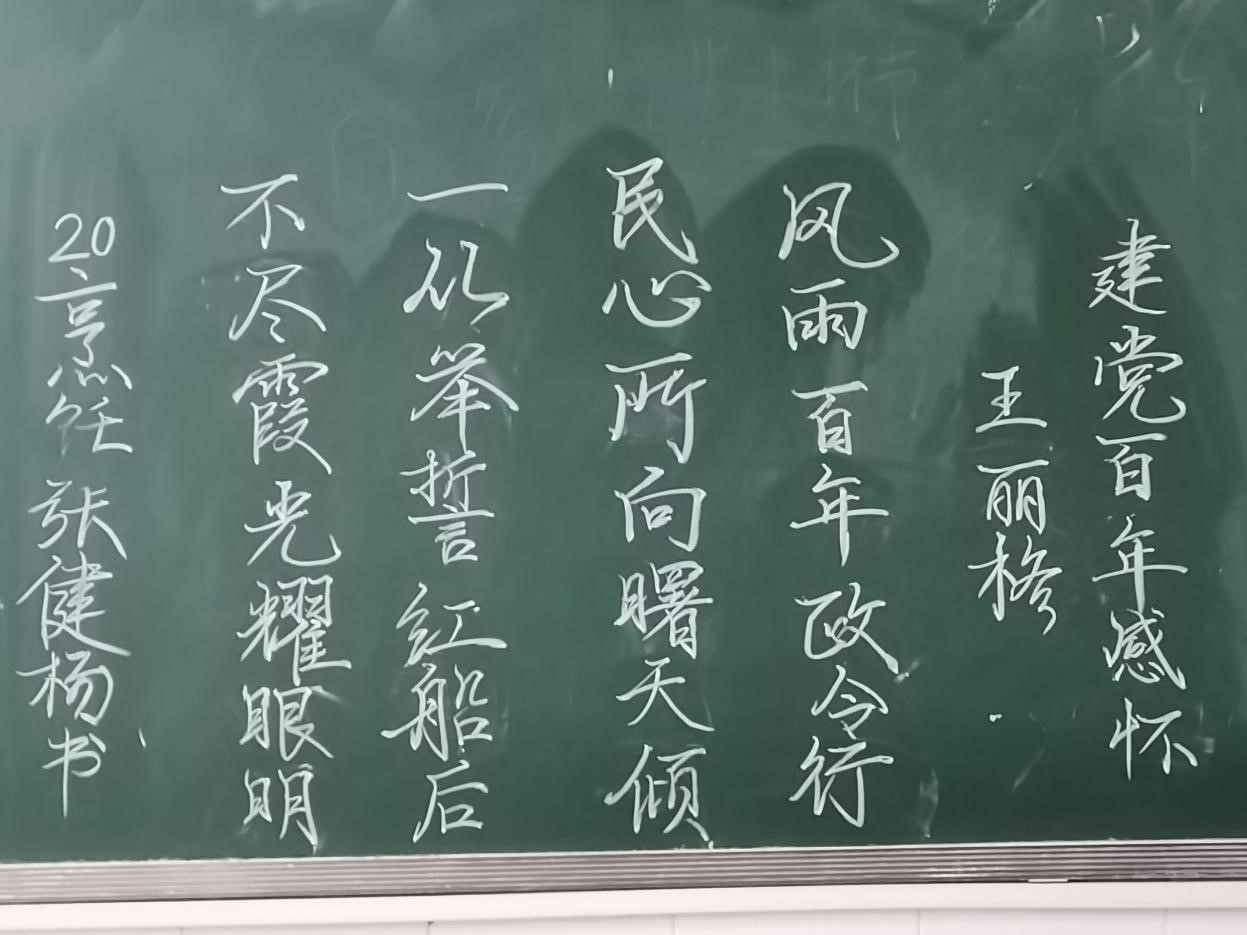 建党百年感怀
王丽格
风雨百年政令行
民心所向曙天倾
一从举誓红船后
不尽霞光耀眼明
20烹饪 张健杨书